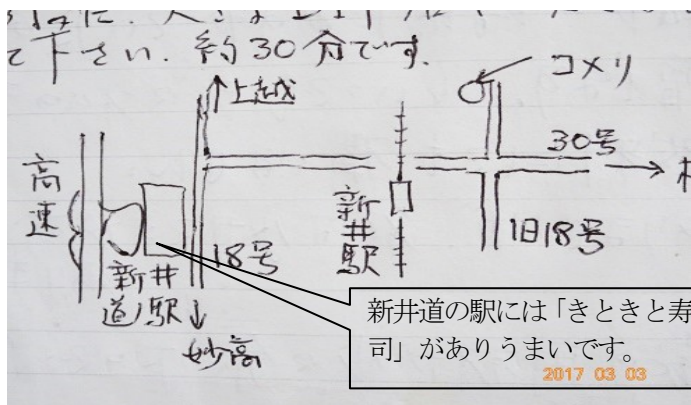 て下さい. 約30分です.
コメリ
↑上越
30号
高速
新井駅
旧18号
18号
新井道ノ駅
↓
妙高
新井道の駅には「きときと寿
司」がありうまいです。
2017 03 03